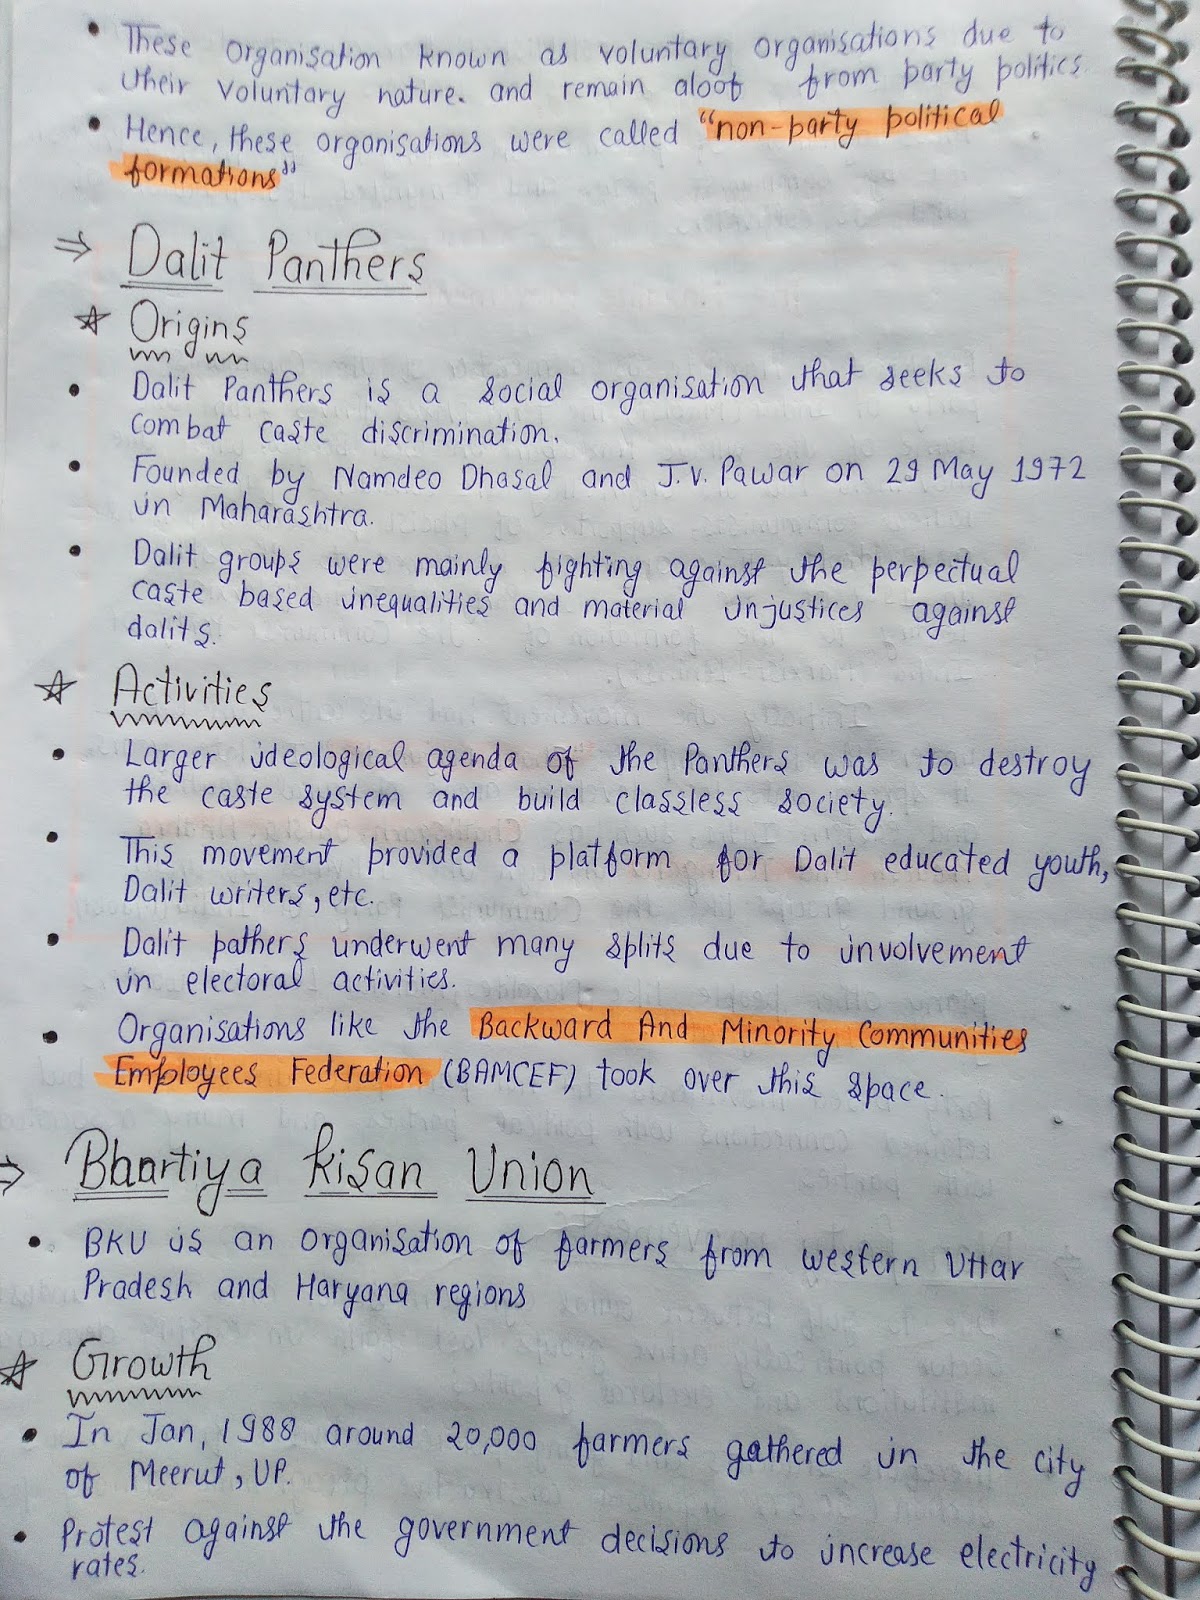 • These organisation known as voluntary organisations due to
their voluntary nature. and remain aloof from party politics
• Hence, these organisations were called "non-party political
formations"
⇒ Dalit Panthers
☆ Origins
• Dalit Panthers is a social organisation that seeks to
combat caste discrimination.
• Founded by Namdeo Dhasal and J.V. Pawar on 29 May 1972
in Maharashtra.
• Dalit groups were mainly fighting against the perpectual
caste based inequalities and material injustices against
dalits.
☆ Activities
• Larger ideological agenda of the Panthers was to destroy
the caste system and build classless society.
• This movement provided a platform for Dalit educated youth,
Dalit writers, etc.
• Dalit pathers underwent many splits due to involvement
in electoral activities.
• Organisations like the Backward And Minority Communities
Employees Federation (BAMCEF) took over this space.
⇒ Bhartiya Kisan Union
• BKU is an organisation of farmers from western Uttar
Pradesh and Haryana regions
☆ Growth
• In Jan, 1988 around 20,000 farmers gathered in the city
of Meerut, UP.
• Protest against the government decisions to increase electricity
rates.